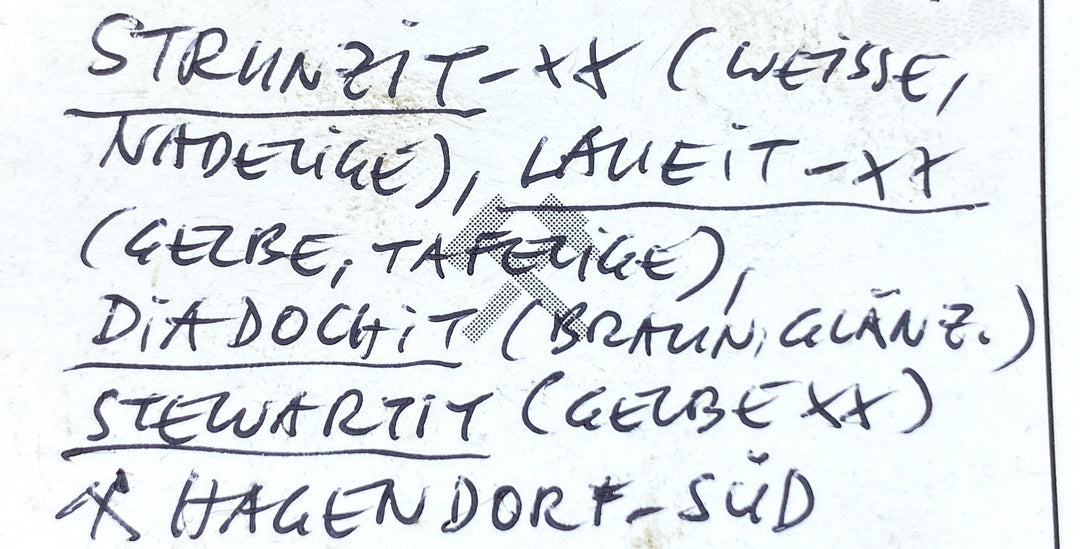 STRUNZiT-XX (WEiSSE,
NADELiGE), LAUEiT-XX
(GELBE, TAFELiGE),
DiADOCHiT (BRAUN, GLÄNZ.)
STEWARTiT (GELBE XX)
⚒ HAGENDORF-SÜD